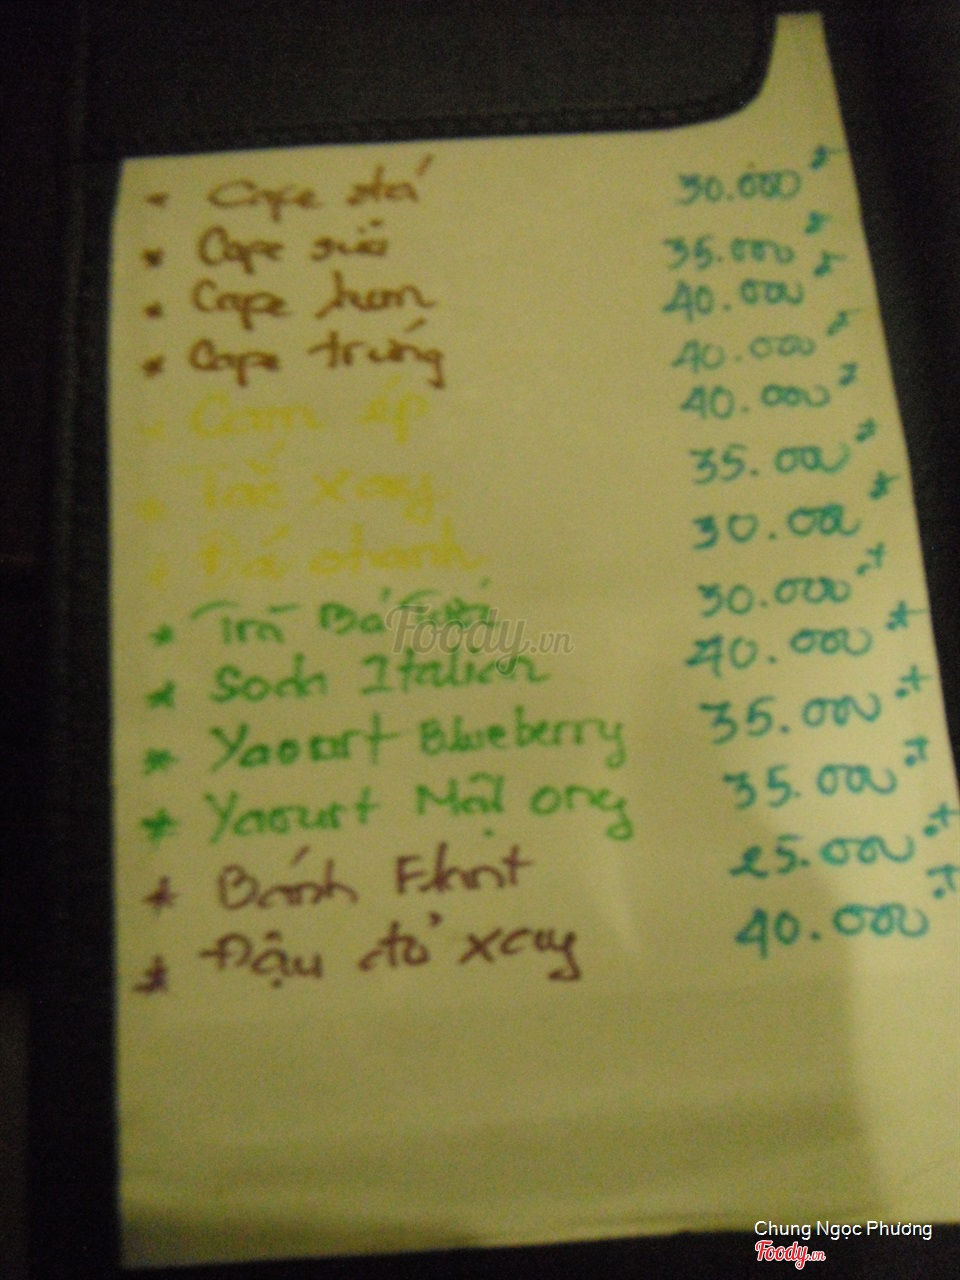 * Cafe đá 30.000đ
* Cafe sữa 35.000đ
* Cafe hum 40.000đ
* Cafe trứng 40.000đ
* Cam ép 40.000đ
* Tắc xay 35.000đ
* Đá chanh 30.000đ
* Trà Bá Tước 30.000đ
* Soda Italian 40.000đ
* Yaourt Blueberry 35.000đ
* Yaourt Mật ong 35.000đ
* Bánh Flant 25.000đ
* Đậu đỏ xay 40.000đ
Foody.vn
Chung Ngọc Phương
Foody.vn